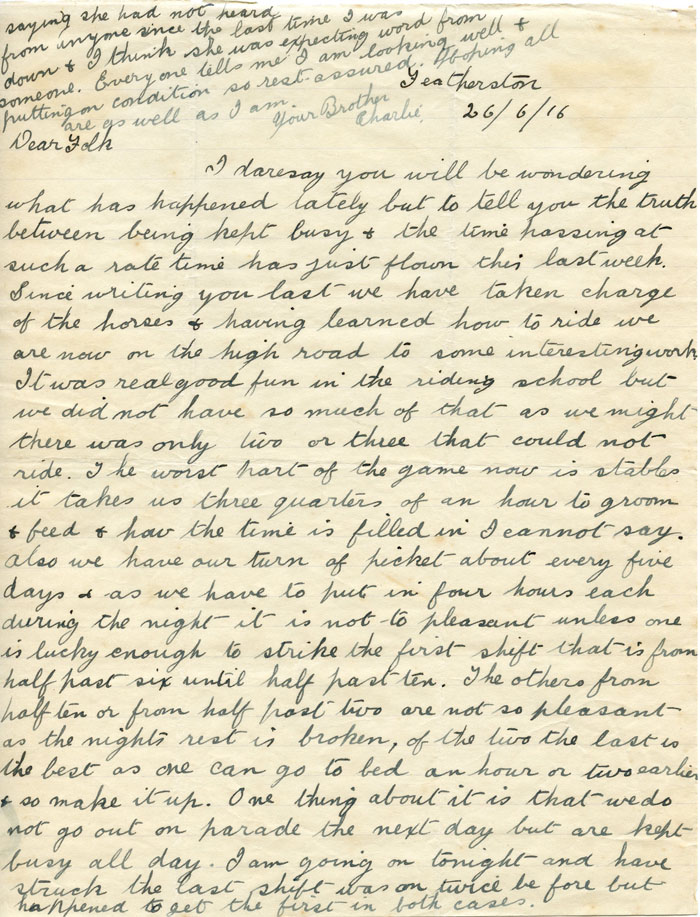 saying she had not heard
from anyone since the last time I was
down & I think she was expecting word from
someone. Everyone tells me I am looking well &
putting on condition so rest assured. Hoping all
are as well as I am.
Your Brother
Charlie.
Featherston
26/6/16
Dear Folk
I daresay you will be wondering
what has happened lately but to tell you the truth
between being kept busy & the time passing at
such a rate time has just flown this last week.
Since writing you last we have taken charge
of the horses & having learned how to ride we
are now on the high road to some interesting work.
It was real good fun in the riding school but
we did not have so much of that as we might
there was only two or three that could not
ride. The worst part of the game now is stables
it takes us three quarters of an hour to groom
& feed & how the time is filled in I cannot say.
Also we have our turn of picket about every five
days & as we have to put in four hours each
during the night it is not to pleasant unless one
is lucky enough to strike the first shift that is from
half past six until half past ten. The others from
half ten or from half past two are not so pleasant
as the nights rest is broken, of the two the last is
the best as one can go to bed an hour or two earlier
& so make it up. One thing about it is that we do
not go out on parade the next day but are kept
busy all day. I am going on tonight and have
struck the last shift was on twice before but
happened to get the first in both cases.